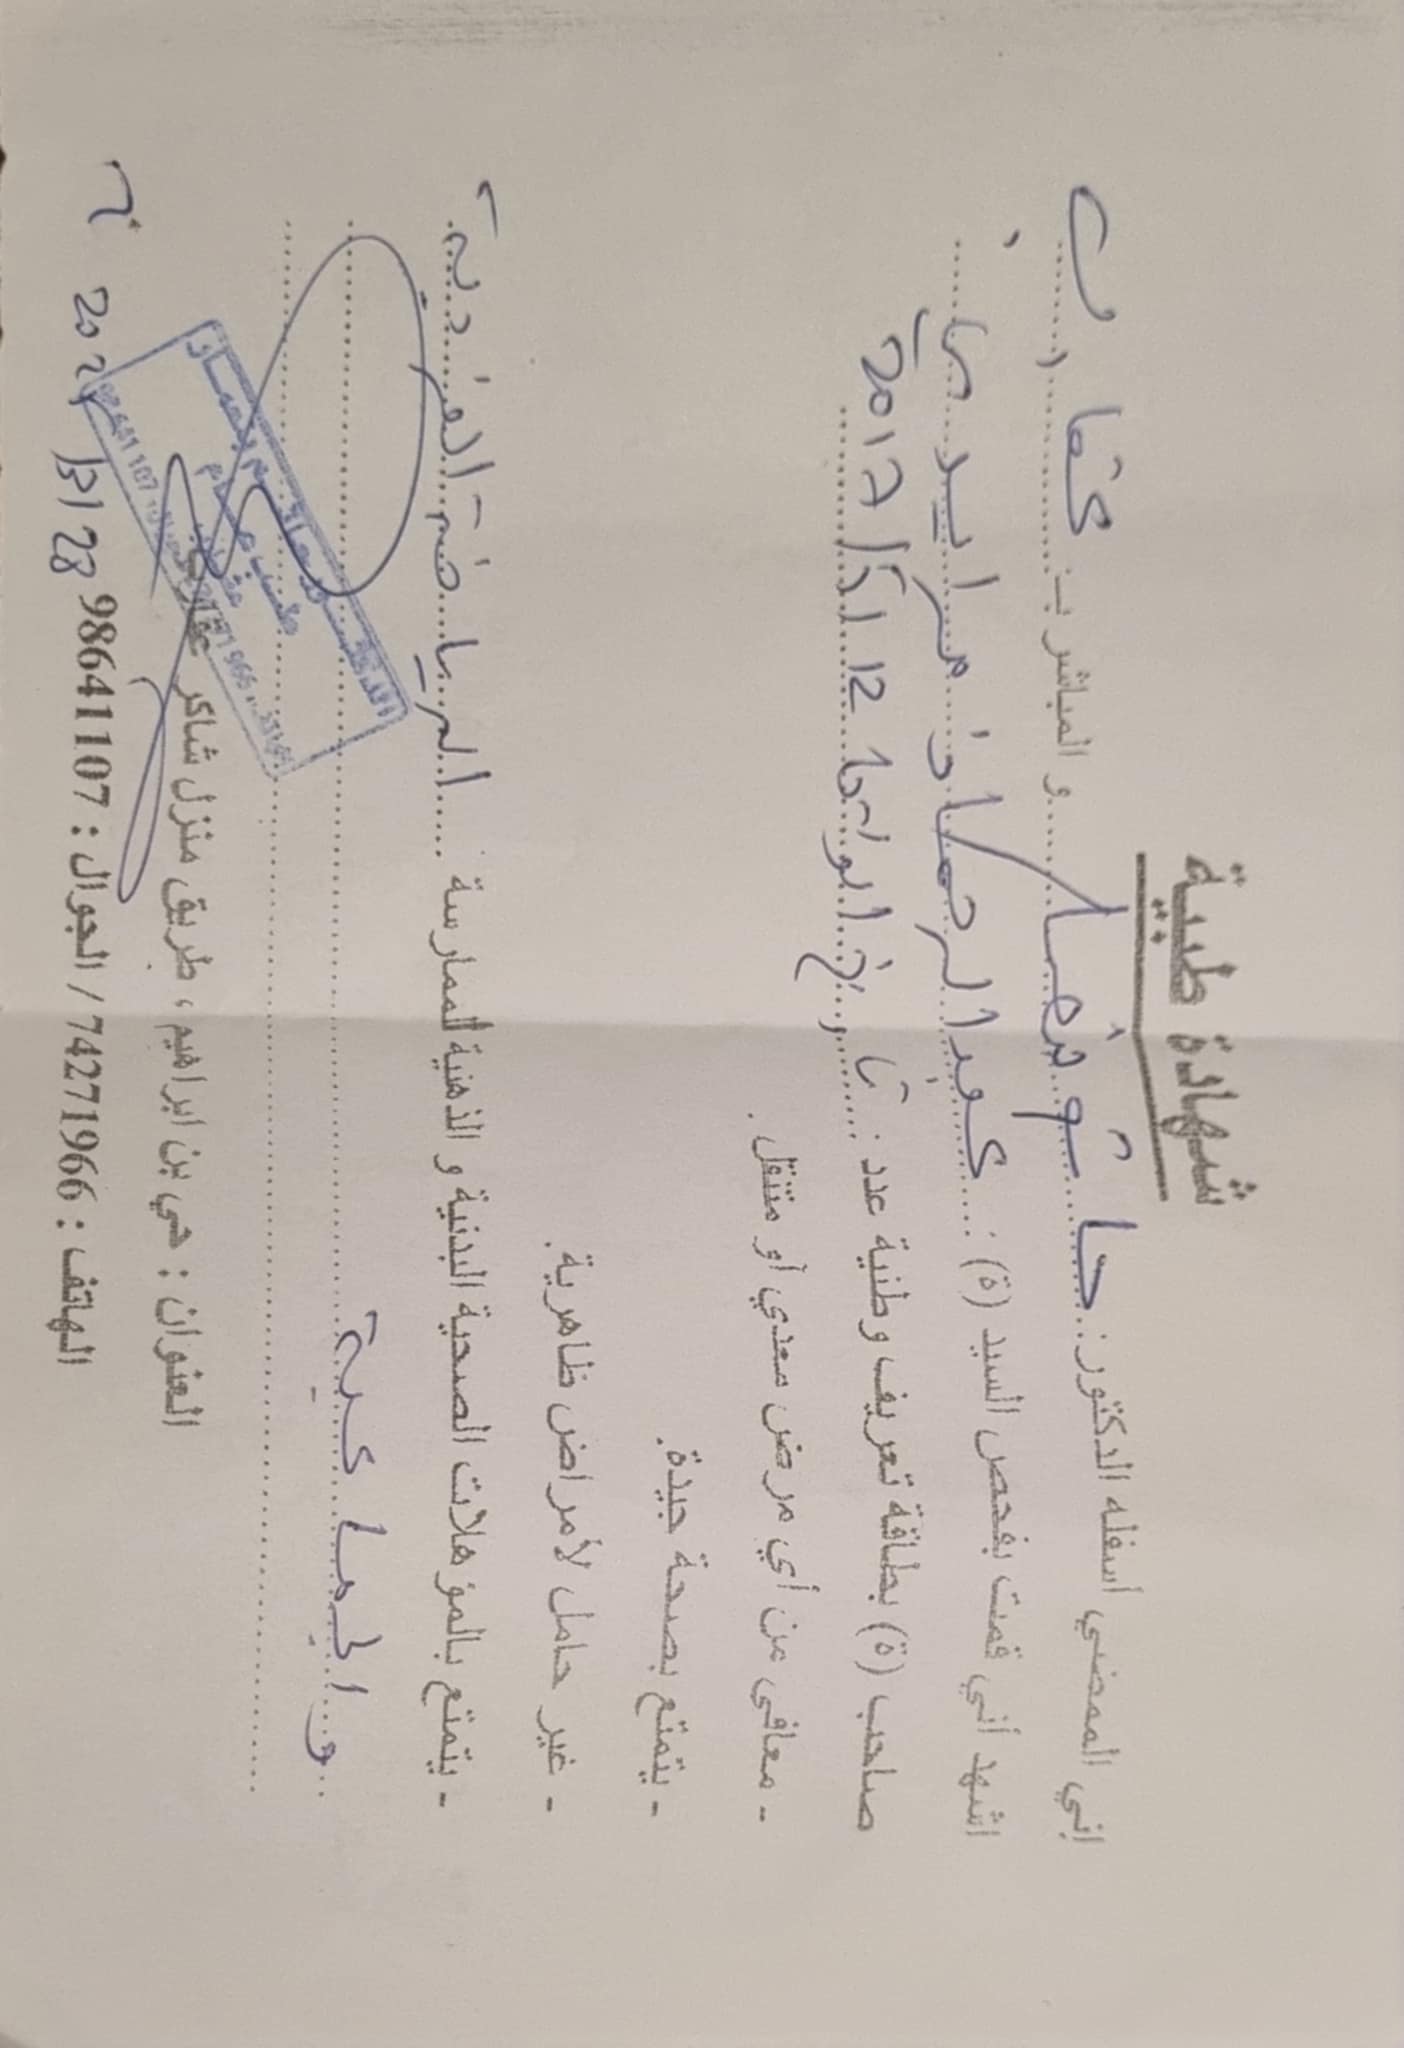 شهادة طبية
إني الممضي أسفله الدكتور: و المباشر بـ: عقارب
اشهد أني قمت بفحص السيد (ة): عبد الرحمان
صاحب (ة) بطاقة تعريف وطنية عدد: تاريخ الولادة 12 2017
- معافى من أي مرض معدي أو متنقل.
- يتمتع بصحة جيدة.
- غير حامل لأمراض ظاهرية.
- يتمتع بالمؤهلات الصحية البدنية و الذهنية لممارسة الرياضة الفردية
و الجماعية
العنوان: حي بن ابراهيم، طريق منزل شاكر عقارب
الهاتف: 74271966 / الجوال: 98641107